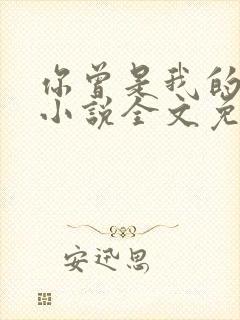 你曾是我的
小說全文免
安迅思